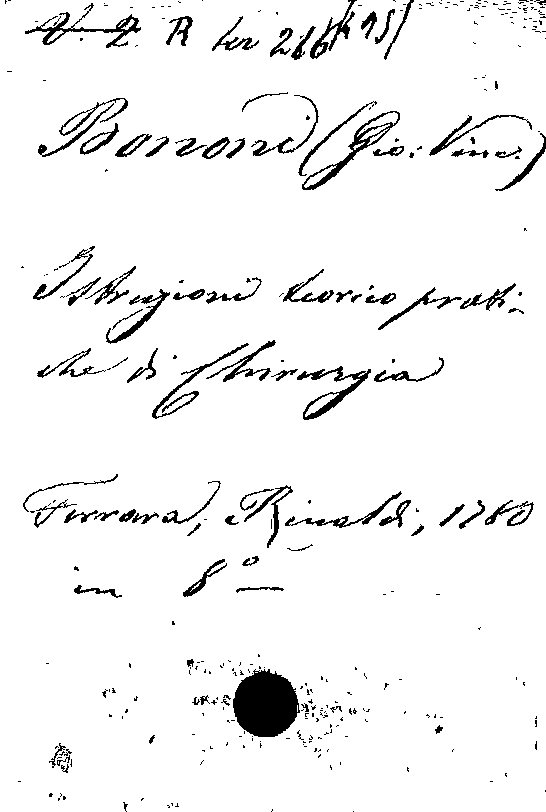 V. 2 R ter 266
Bononi (Gio: Vinc.)
Istruzioni teorico prati-
che di Chirurgia
Ferrara, Rinaldi, 1780
in 8º